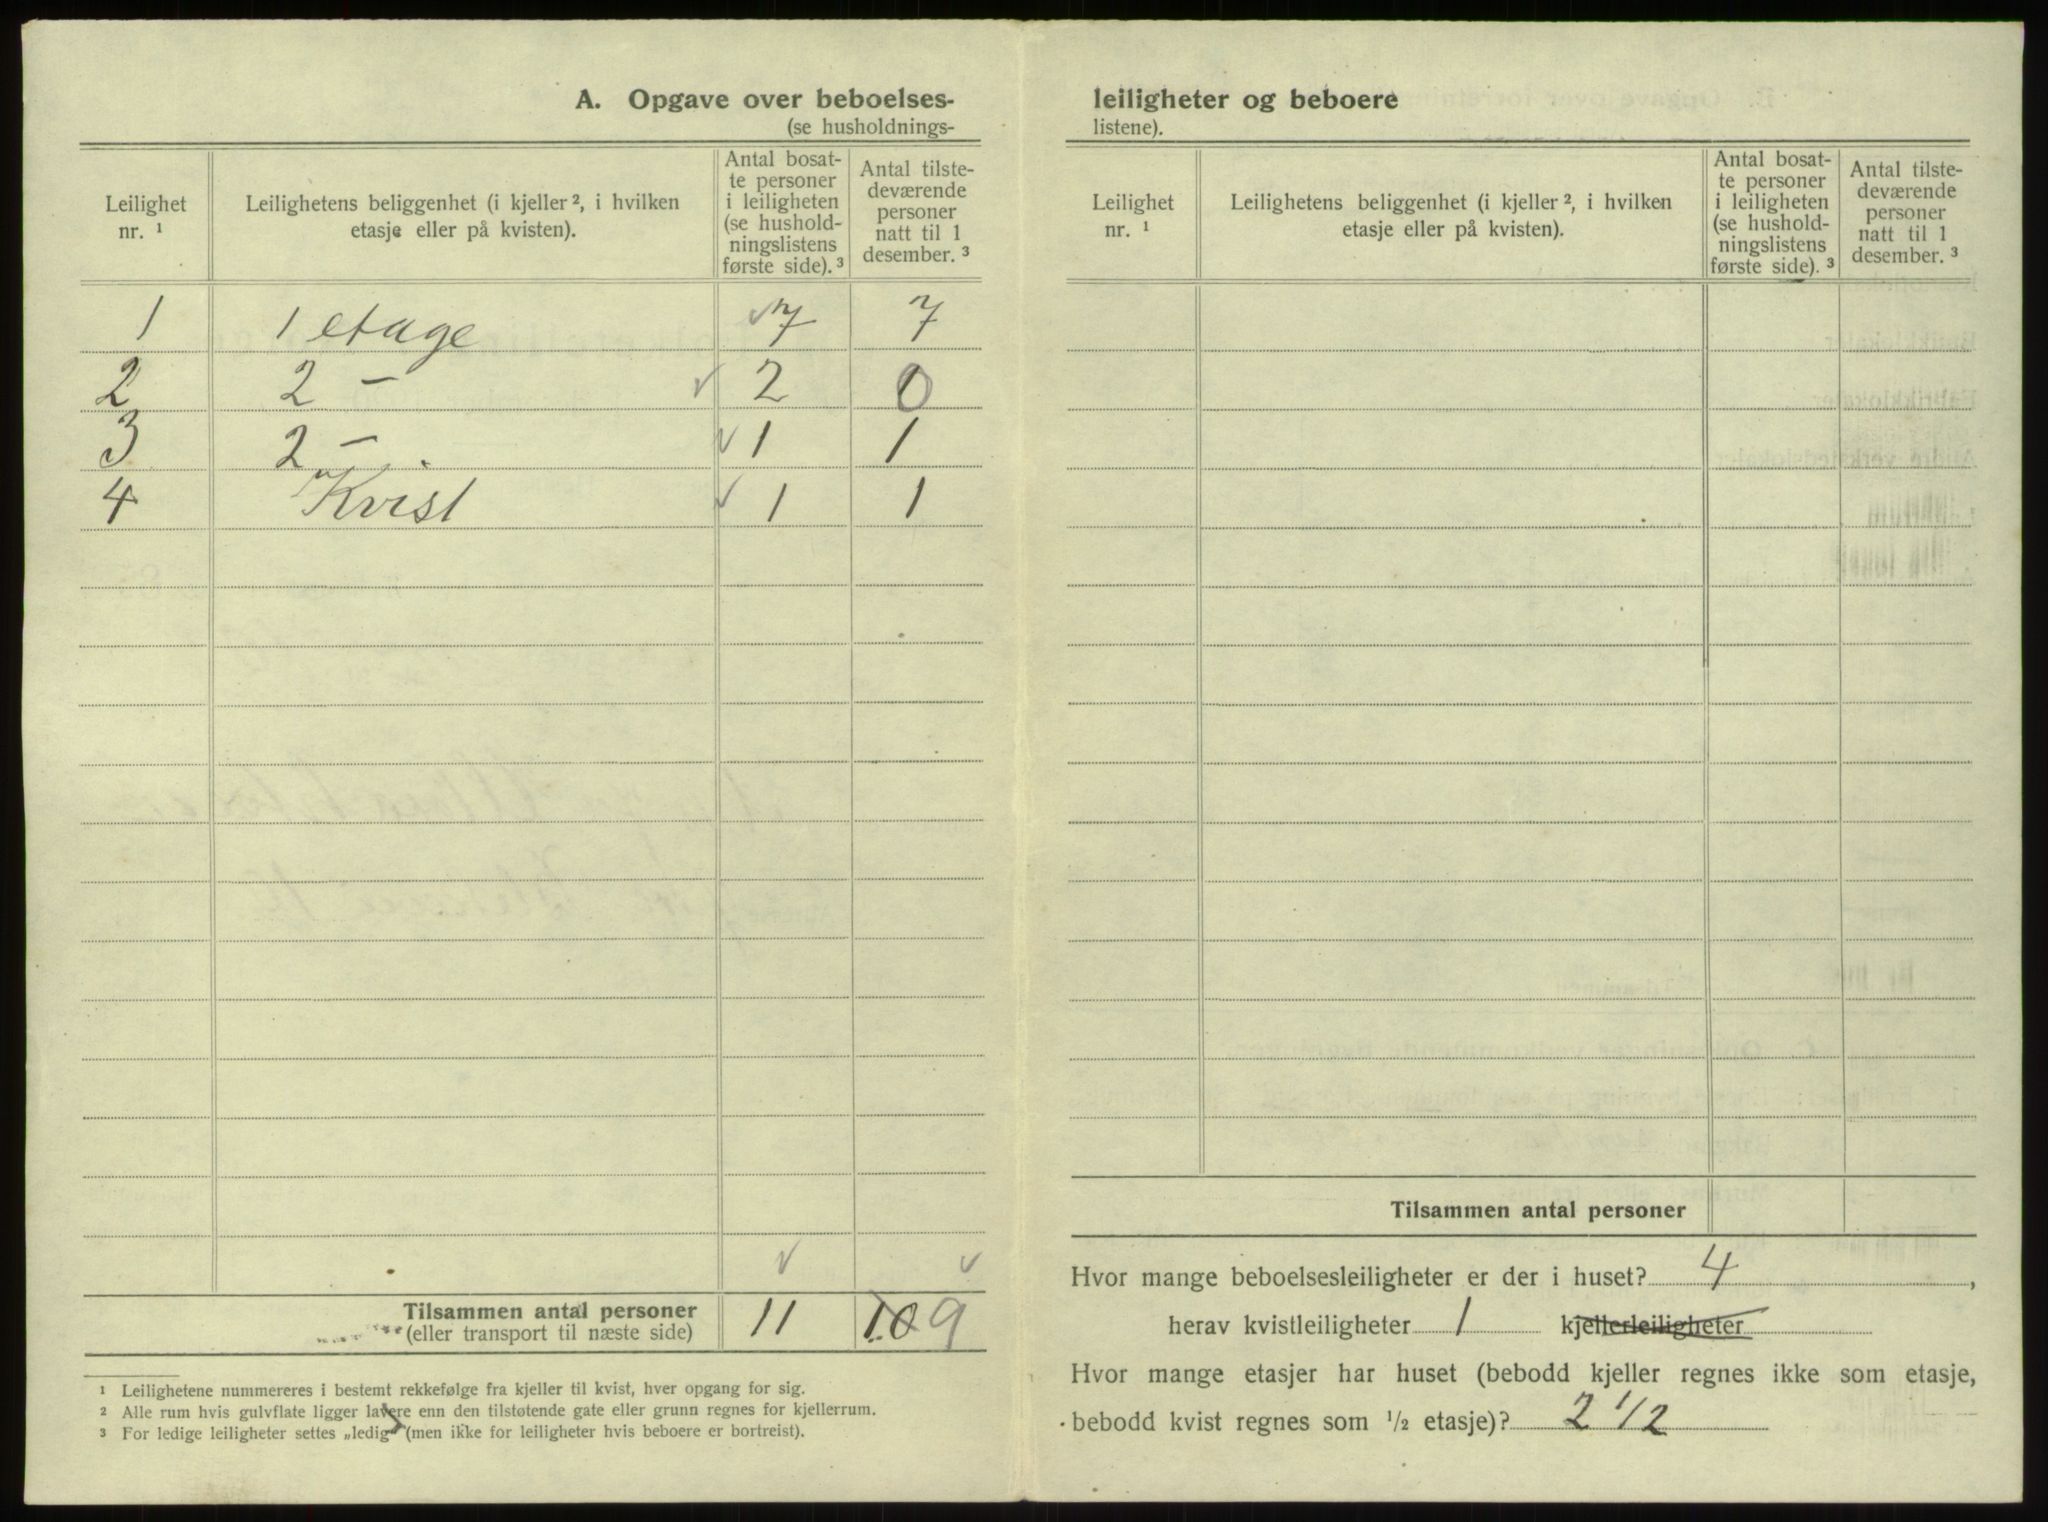 A. Opgave over beboelses-
(se husholdnings-
Leilighet nr. ¹
Leilighetens beliggenhet (i kjeller ², i hvilken etasje eller på kvisten).
Antal bosat-
te personer
i leiligheten
(se hushold-
ningslistens
første side). ³
Antal tilste-
deværende
personer
natt til 1
desember. ³
1 1 etage 7 7
2 2 – 2 0
3 2 – . 1 1
4 Kvist 1 1
Tilsammen antal personer 11 10 9
(eller transport til næste side)
¹ Leilighetene nummereres i bestemt rekkefølge fra kjeller til kvist, hver opgang for sig.
² Alle rum hvis gulvflate ligger lavere enn den tilstøtende gate eller grunn regnes for kjellerrum.
³ For ledige leiligheter settes „ledig" (men ikke for leiligheter hvis beboere er bortreist).
leiligheter og beboere
listene).
Leilighet nr. ¹
Leilighetens beliggenhet (i kjeller ², i hvilken etasje eller på kvisten).
Antal bosat-
te personer
i leiligheten
(se hushold-
ningslistens
første side). ³
Antal tilste-
deværende
personer
natt til 1
desember. ³
Tilsammen antal personer
Hvor mange beboelsesleiligheter er der i huset? 4 ,
herav kvistleiligheter 1 kjellerleiligheter
Hvor mange etasjer har huset (bebodd kjeller regnes ikke som etasje,
bebodd kvist regnes som ½ etasje)? 2 1/2